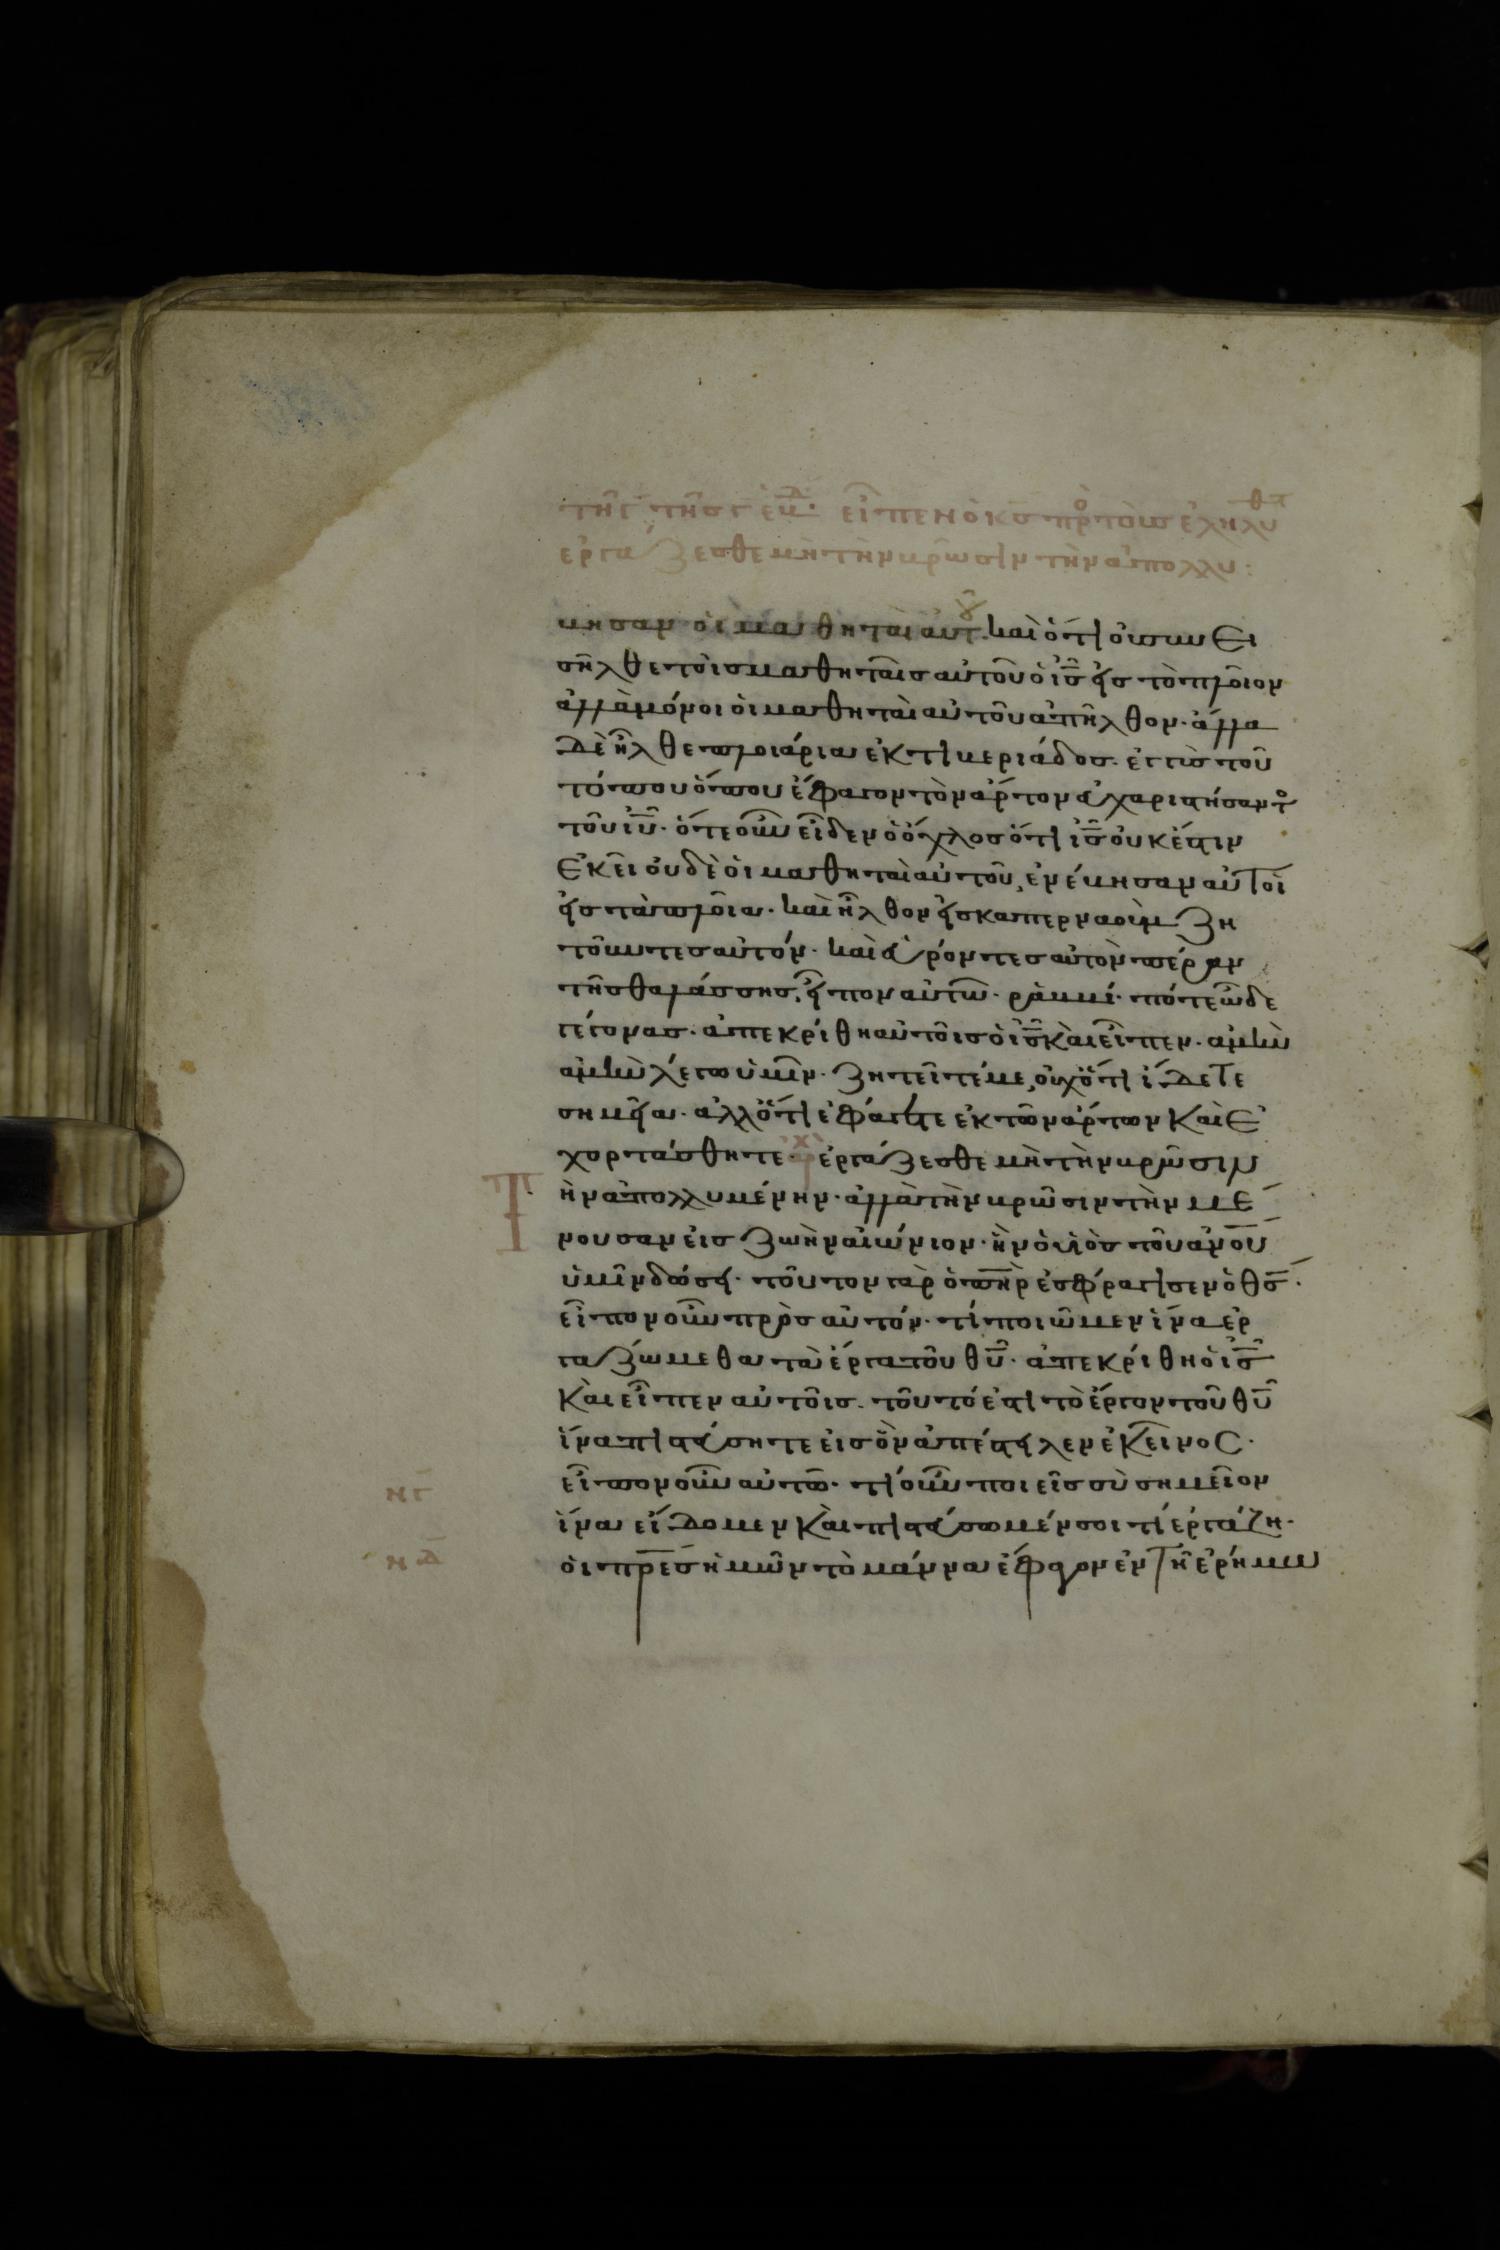 τῆς γ τῆς ϛ ἑβδ· εἶπεν ὁ κς πρ τοὺς ἐληλυθτ
ἐργάζεσθε μὴ τὴν βρῶσιν τὴν ἀπολλυ:
βησαν οἱ μαθηταὶ αὐτοῦ. καὶ ὅτι οὐ συν Ει
σῆλθε τοῖς μαθηταῖς αὐτοῦ ὁ ις εἰς τὸ πλοῖον
ἀλλὰ μόνοι οἱ μαθηταὶ αὐτοῦ ἀπῆλθον· ἄλλα
δὲ ἦλθε πλοιάρια ἐκ τιβεριάδος· ἐγγὺς τοῦ
τόπου ὅπου ἔφαγον τὸν ἄρτον εὐχαριστήσαντο
τοῦ ιυ· ὅτε οὖν εἶδεν ὁ ὄχλος ὅτι ις οὐκ ἔστιν
Ἐκεῖ οὐδὲ οἱ μαθηταὶ αὐτοῦ, ἐνέβησαν αὐτοὶ
εἰς τὰ πλοῖα· καὶ ἦλθον εἰς καπερναοὺμ ζη
τοῦντες αὐτόν· καὶ εὑρόντες αὐτὸν πέραν
τῆς θαλάσσης, εἶπον αὐτῶ· ῥαββί· πότε ὧδε
γέγονας· ἀπεκρίθη αὐτοῖς ὁ ις καὶ εἶπεν· ἀμὴν
ἀμὴν λέγω ὑμῖν· ζητεῖτέ με, οὐχ ὅτι ἴδετε
σημεῖα· ἀλλ ὅτι ἐφάγετε ἐκ τῶν ἄρτων καὶ ἐ
χορτάσθητε· ἀρχ ἐργάζεσθε μὴ τὴν βρῶσιν
Τ ὴν ἀπολλυμένην· ἀλλὰ τὴν βρῶσιν τὴν μέ
νουσαν εἰς ζωὴν αἰώνιον· ἣν ὁ υἱὸς τοῦ ανου
ὑμῖν δώσει· τοῦτον γὰρ ὁ πηρ ἐσφράγισεν ὁ θς·
εἶπον οὖν πρὸς αὐτόν· τί ποιῶμεν ἵνα ἐρ
γαζώμεθα τὰ ἔργα τοῦ θυ· ἀπεκρίθη ὁ ις
καὶ εἶπεν αὐτοῖς· τοῦτό ἐστι τὸ ἔργον τοῦ θυ
ἵνα πιστεύσητε εἰς ὃν ἀπέστειλεν ἐκεῖνος·
νγ εἶπον οὖν αὐτῶ· τί οὖν ποιεῖς σὺ σημεῖον
ἵνα εἴδομεν καὶ πιστεύσωμέν σοι τί ἐργάζη·
νδ οἱ πρες ἡμῶν τὸ μάννα ἔφαγον ἐν τῆ ἐρήμω